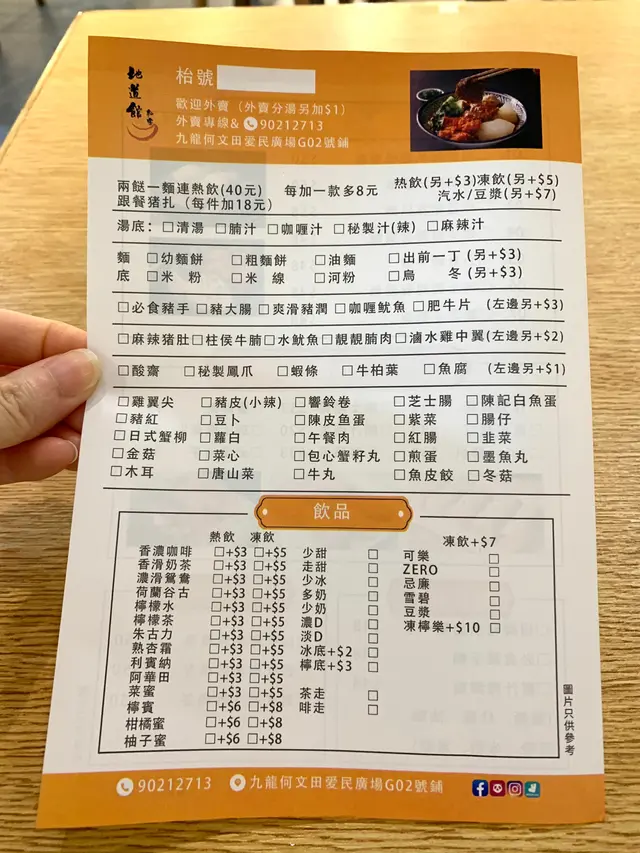 地道館
枱號
歡迎外賣 (外賣分湯另加$1)
外賣專線& 90212713
九龍何文田愛民廣場G02號鋪
兩餸一麵連熱飲(40元) 每加一款多8元 热飲(另+$3)凍飲(另+$5)
跟餐猪扎 (每件加18元) 汽水/豆漿(另+$7)
湯底: □清湯 □腩汁 □咖喱汁 □秘製汁(辣) □麻辣汁
麵 □幼麵餅 □粗麵餅 □油麵 □出前一丁 (另+$3)
底 □米 粉 □米 線 □河粉 □烏 冬 (另+$3)
□必食豬手 □豬大腸 □爽滑豬潤 □咖喱魷魚 □肥牛片 (左邊另+$3)
□麻辣猪肚 □柱侯牛腩 □水魷魚 □靚靚腩肉 □滷水雞中翼(左邊另+$2)
□酸齋 □秘製鳳爪 □蝦條 □牛柏葉 □魚腐 (左邊另+$1)
□雞翼尖 □豬皮(小辣) □響鈴卷 □芝士腸 □陳記白魚蛋
□豬紅 □豆卜 □陳皮魚蛋 □紫菜 □腸仔
□日式蟹柳 □蘿白 □午餐肉 □紅腸 □韭菜
□金菇 □菜心 □包心蟹籽丸 □煎蛋 □墨魚丸
□木耳 □唐山菜 □牛丸 □魚皮餃 □冬菇
飲品
熱飲 凍飲 凍飲+$7
香濃咖啡 □+$3 □+$5 少甜 □ 可樂 □
香滑奶茶 □+$3 □+$5 走甜 □ ZERO □
濃滑鴛鴦 □+$3 □+$5 少冰 □ 忌廉 □
荷蘭谷古 □+$3 □+$5 多奶 □ 雪碧 □
檸檬水 □+$3 □+$5 少奶 □ 豆漿 □
檸檬茶 □+$3 □+$5 濃D □ 凍檸樂+$10 □
朱古力 □+$3 □+$5 淡D □
熟杏霜 □+$3 □+$5 冰底+$2 □
利賓納 □+$3 □+$5 檸底+$3 □
阿華田 □+$3 □+$5
菜蜜 □+$3 □+$5 茶走 □
檸賓 □+$6 □+$8 啡走 □
柑橘蜜 □+$6 □+$8
柚子蜜 □+$6 □+$8
圖片只供參考
90212713 九龍何文田愛民廣場G02號鋪